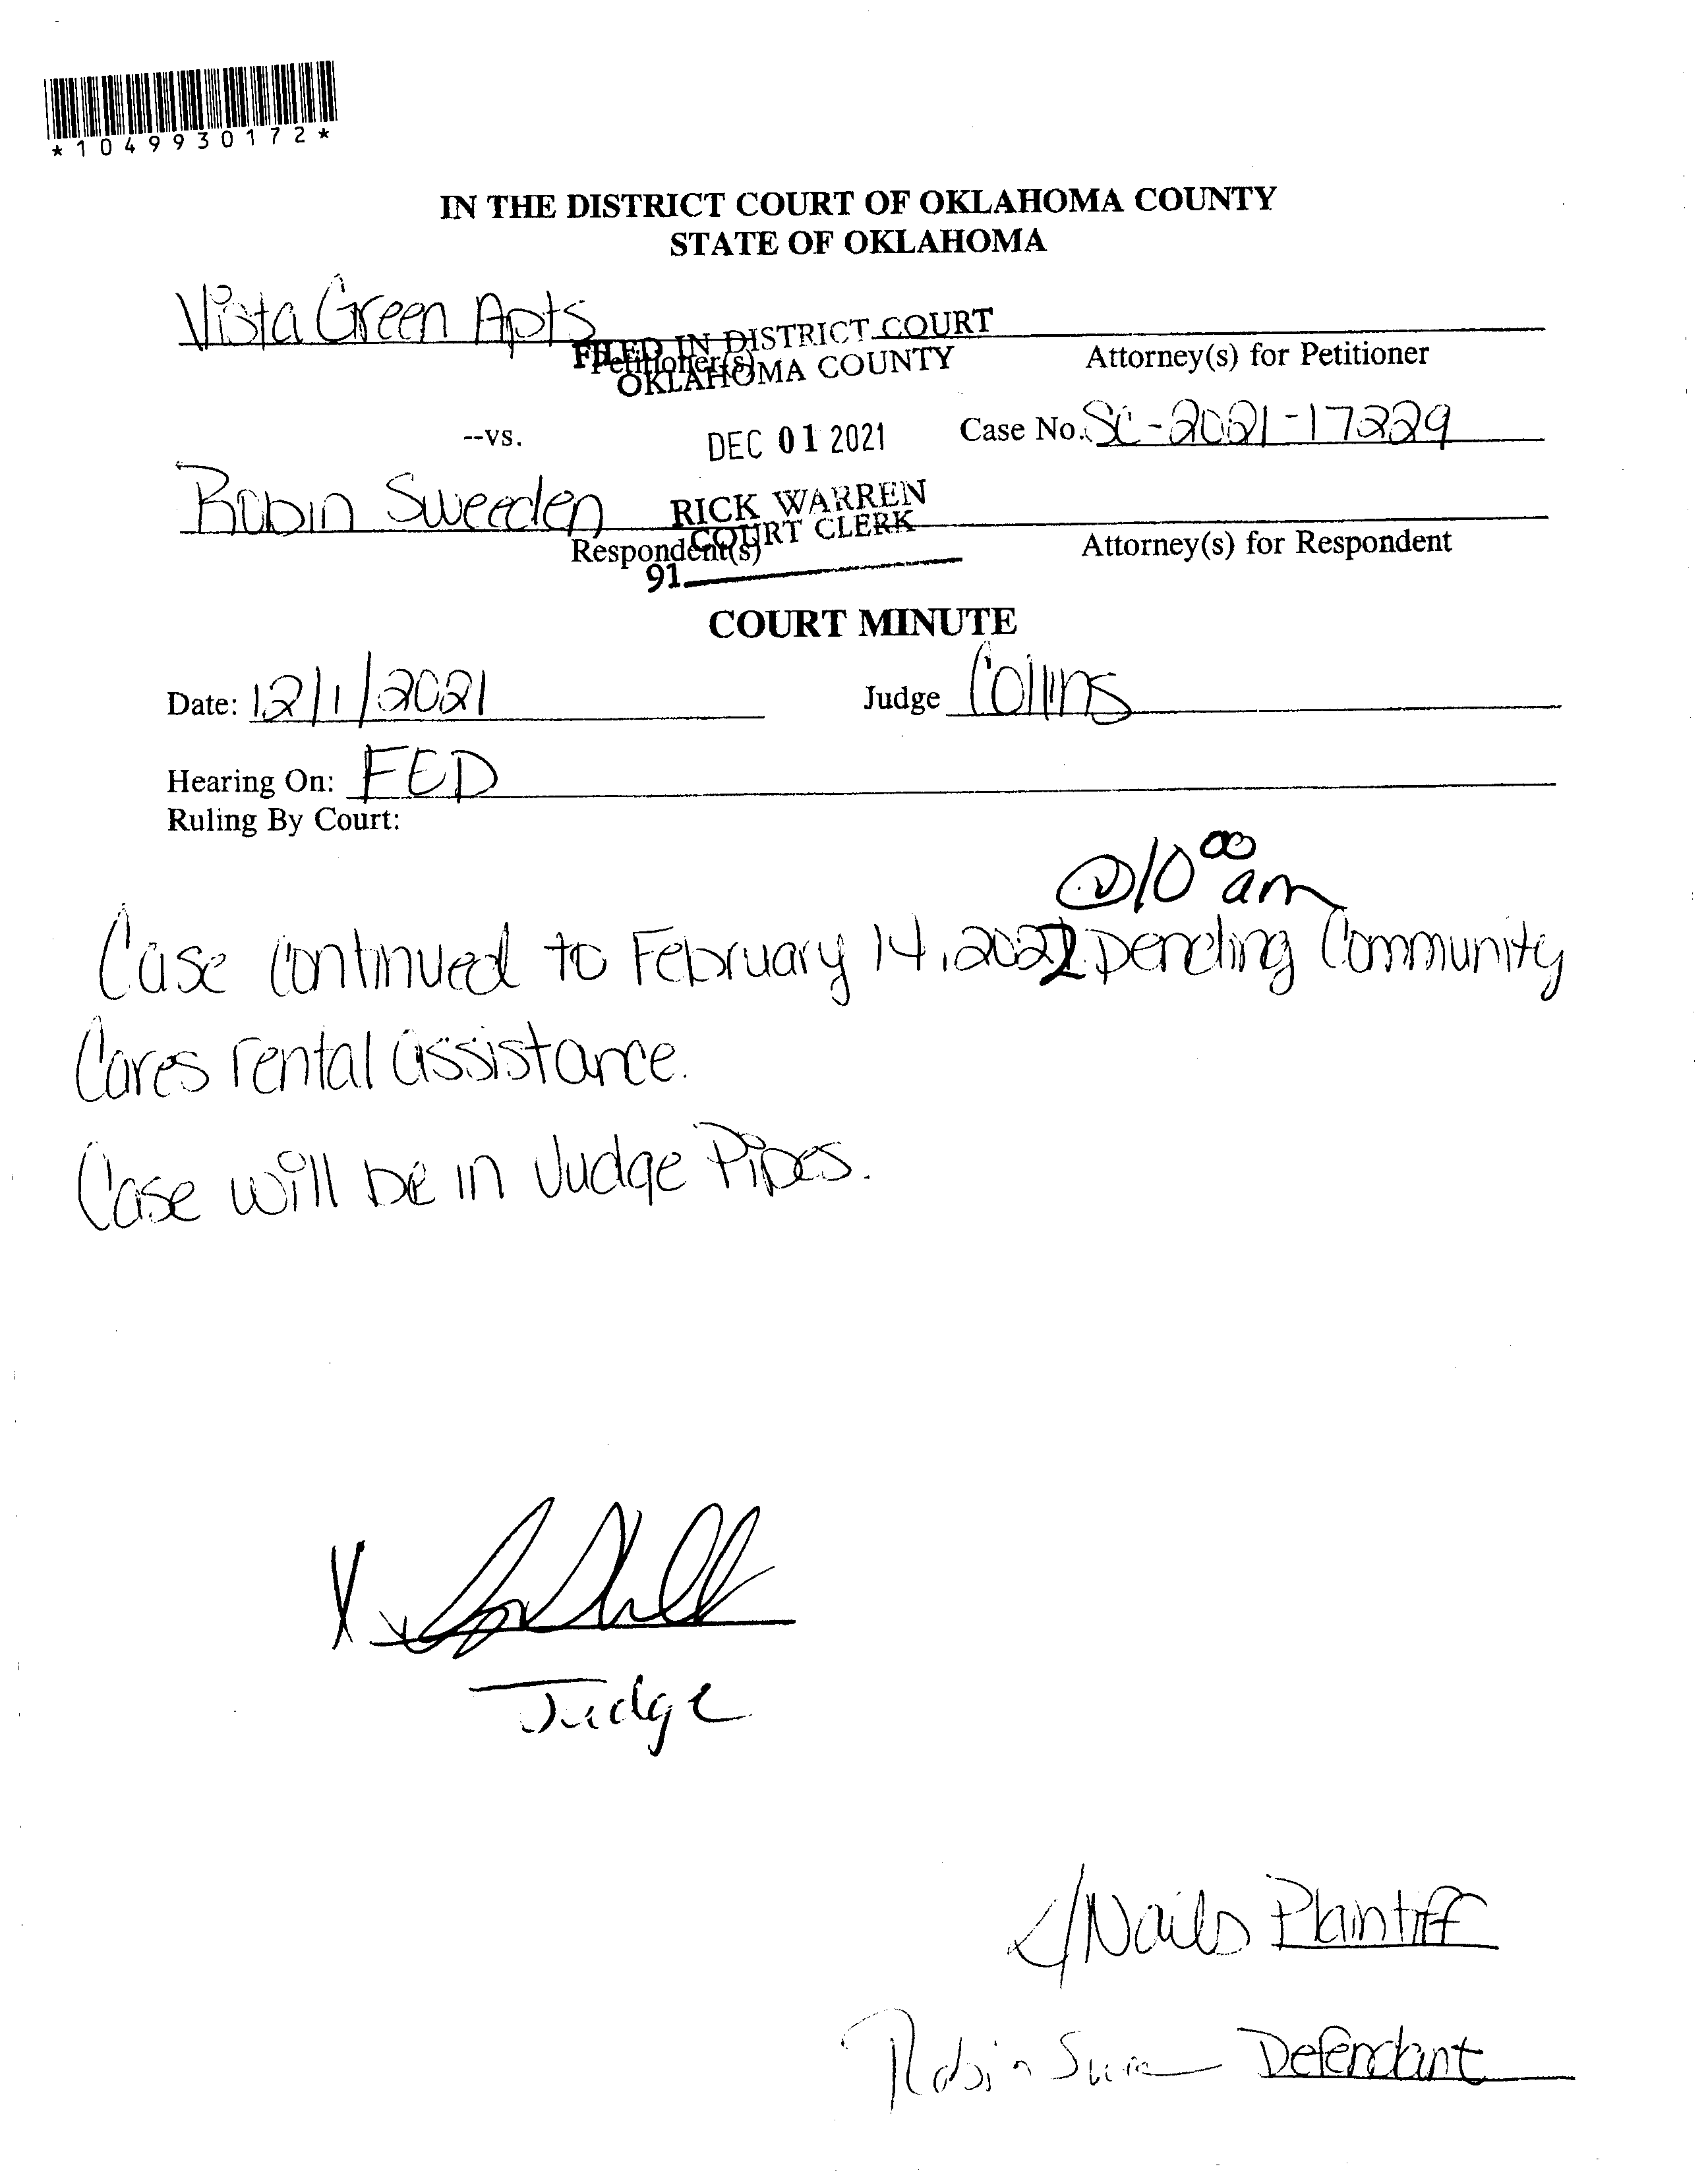 *1049930172*
IN THE DISTRICT COURT OF OKLAHOMA COUNTY
STATE OF OKLAHOMA
Vista Green Apts
FILED IN DISTRICT COURT
Petitioner(s)
OKLAHOMA COUNTY
Attorney(s) for Petitioner
--vs.
DEC 01 2021
Case No. SC-2021-17229
Robin Sweeden
RICK WARREN
COURT CLERK
Respondent(s)
Attorney(s) for Respondent
91
COURT MINUTE
Date: 12/1/2021
Judge Collins
Hearing On: FED
Ruling By Court:
@ 10 00 am
Case continued to February 14, 2022 pending Community
Cares rental assistance.
Case will be in Judge Pipes.
X
Judge
Nails Plaintiff
Robin Defendant